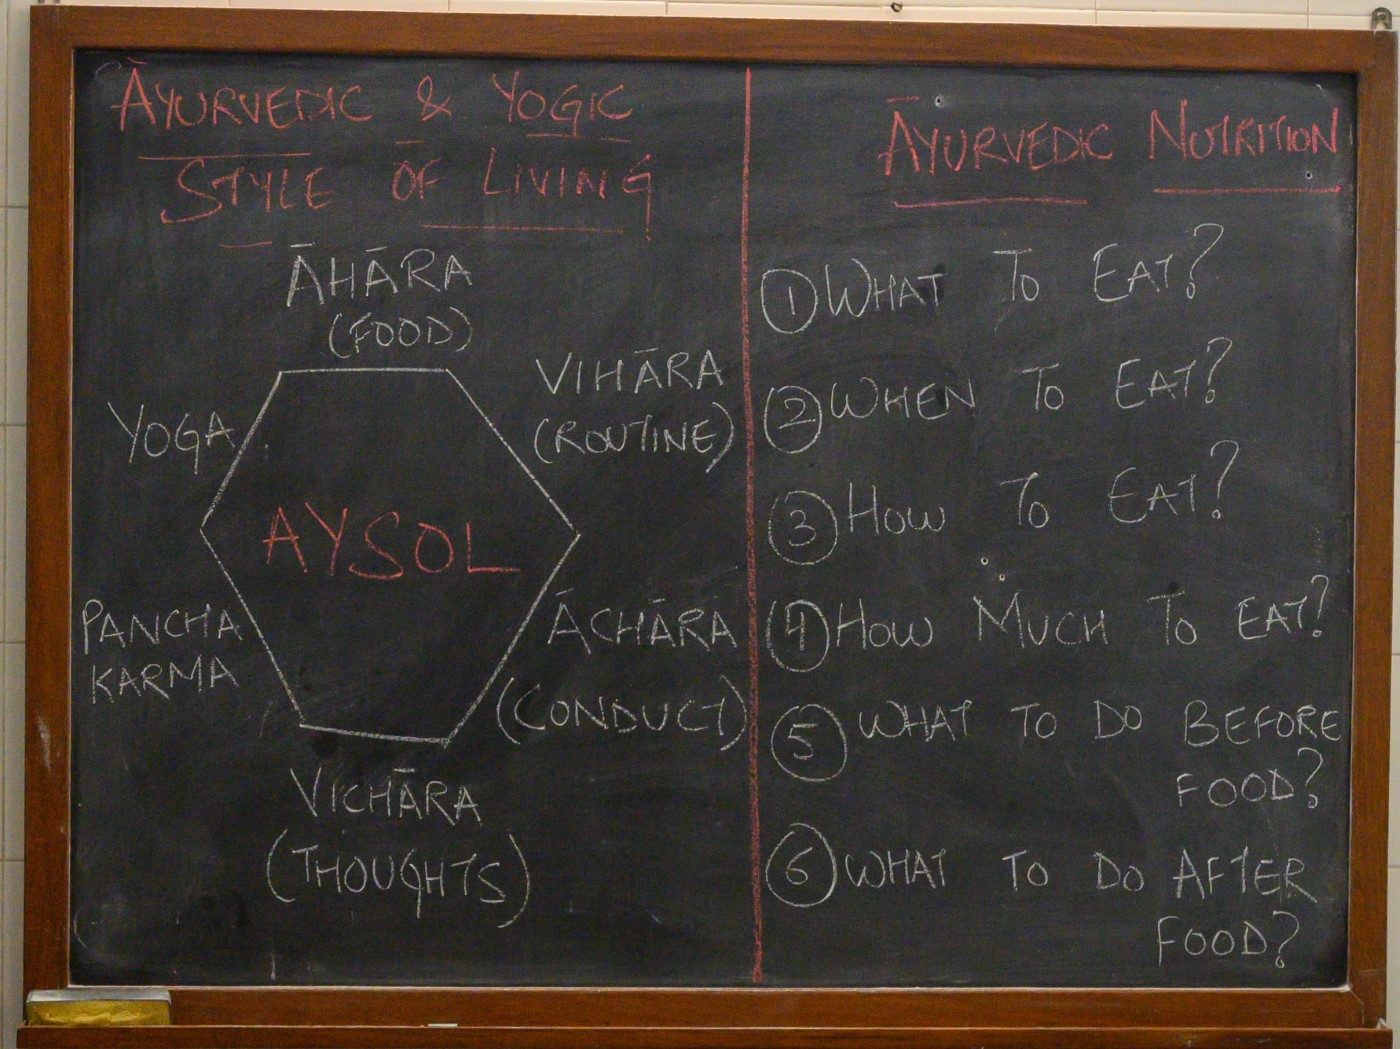 ĀYURVEDIC & YOGIC
STYLE OF LIVING
ĀHĀRA
(FOOD)
VIHĀRA
(ROUTINE)
YOGA
AYSOL
PANCHA
KARMA
ĀCHĀRA
(CONDUCT)
VICHĀRA
(THOUGHTS)
ĀYURVEDIC NUTRITION
1 WHAT TO EAT?
2 WHEN TO EAT?
3 HOW TO EAT?
4 HOW MUCH TO EAT?
5 WHAT TO DO BEFORE
FOOD?
6 WHAT TO DO AFTER
FOOD?